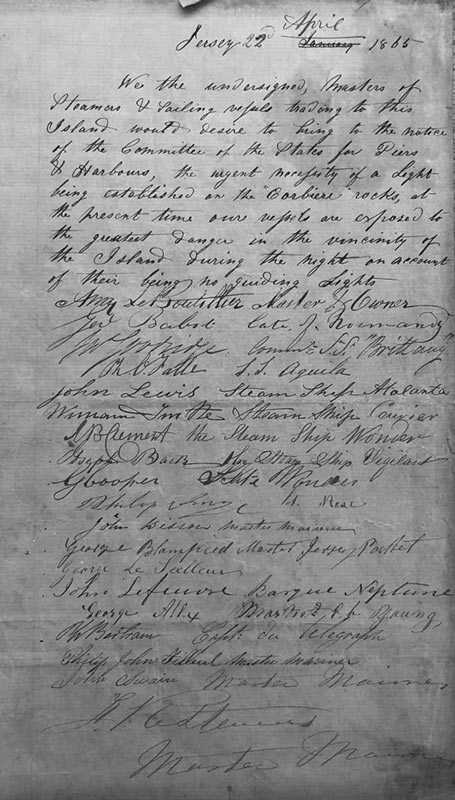 April
Jersey 22d January 1865
We the undersigned, Masters of
Steamers & Sailing vessels trading to this
Island would desire to bring to the notice
of the Committee of the States for Piers
& Harbours, the urgent necessity of a light
being established on the "Corbiere" rocks, at
the present time our vessels are exposed to
the greatest danger in the vincinity of
the Island during the night on account
of their being no guiding lights
Le Boutillier Master & Owner
Geo Babot late of Normandy
Comr. S.S. "Brittany"
S.S. Aquila
John Lewis Steam Ship Atalanta
William Smith Steam Ship Courier
J B Clement the Steam Ship Wonder
Back Steam Ship Vigilant
G Cooper Wonder
Philip
John master mariner
George Blampied Master Jersey Packet
George Le
John Lefeuvre Barque Neptune
George
Bertram Capt. du Telegraph
Philip John Filleul Master Mariner
John Swain Master Mariner
Master Mariner